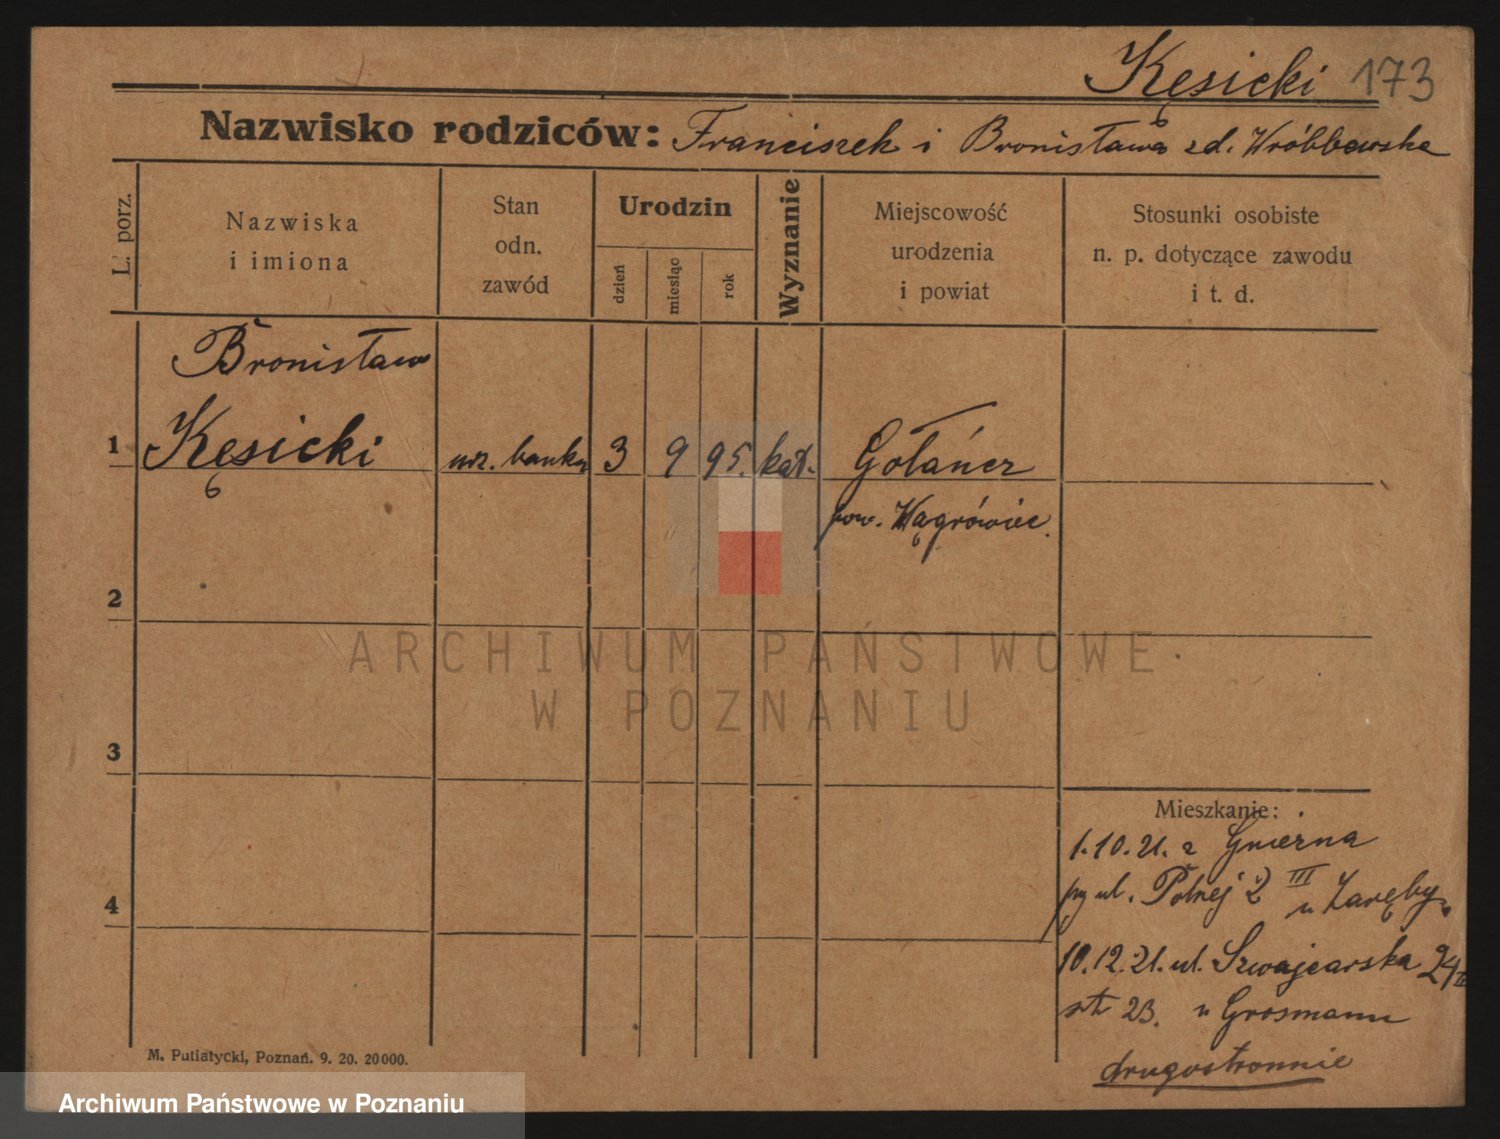 Kęsicki 173
Nazwisko rodziców: Franciszek i Bronisława zd. Wróblewska
L. porz.
Nazwiska
i imiona
Stan
odn.
zawód
Urodzin
dzień
miesiąc
rok
Wyznanie
Miejscowość
urodzenia
i powiat
Stosunki osobiste
n. p. dotyczące zawodu
i t. d.
Bronisław
1 Kęsicki urz. banku 3 9 95. kat. Gołańcz
pow. Wągrówiec.
2
ARCHIWUM PAŃSTWOWE
W POZNANIU
3
Mieszkanie:
1.10.21. z Gniezna
4 przy ul. Polnej 2 III u Zaręby
10.12.21. ul. Szwajcarska 24
23. u Grosmann
drugostronnie
M. Putiatycki, Poznań. 9. 20. 20000.
Archiwum Państwowe w Poznaniu